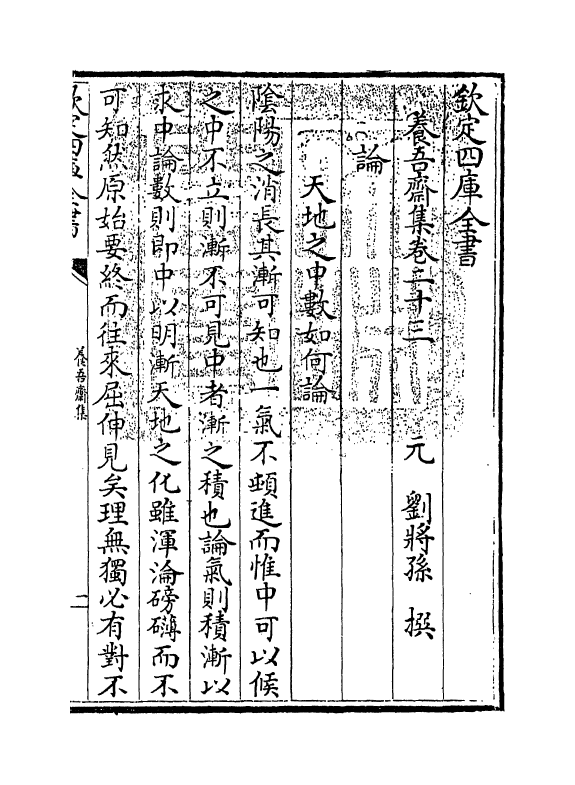 欽定四庫全書
養吾齋集卷二十三 元 劉將孫 撰
論
天地之中數如何論
陰陽之消長其漸可知也一氣不頓進而惟中可以候
之中不立則漸不可見中者漸之積也論氣則積漸以
求中論數則即中以明漸天地之化雖渾淪磅礴而不
可知然原始要終而往來屈伸見矣理無獨必有對不
欽定四庫全書
養吾齋集